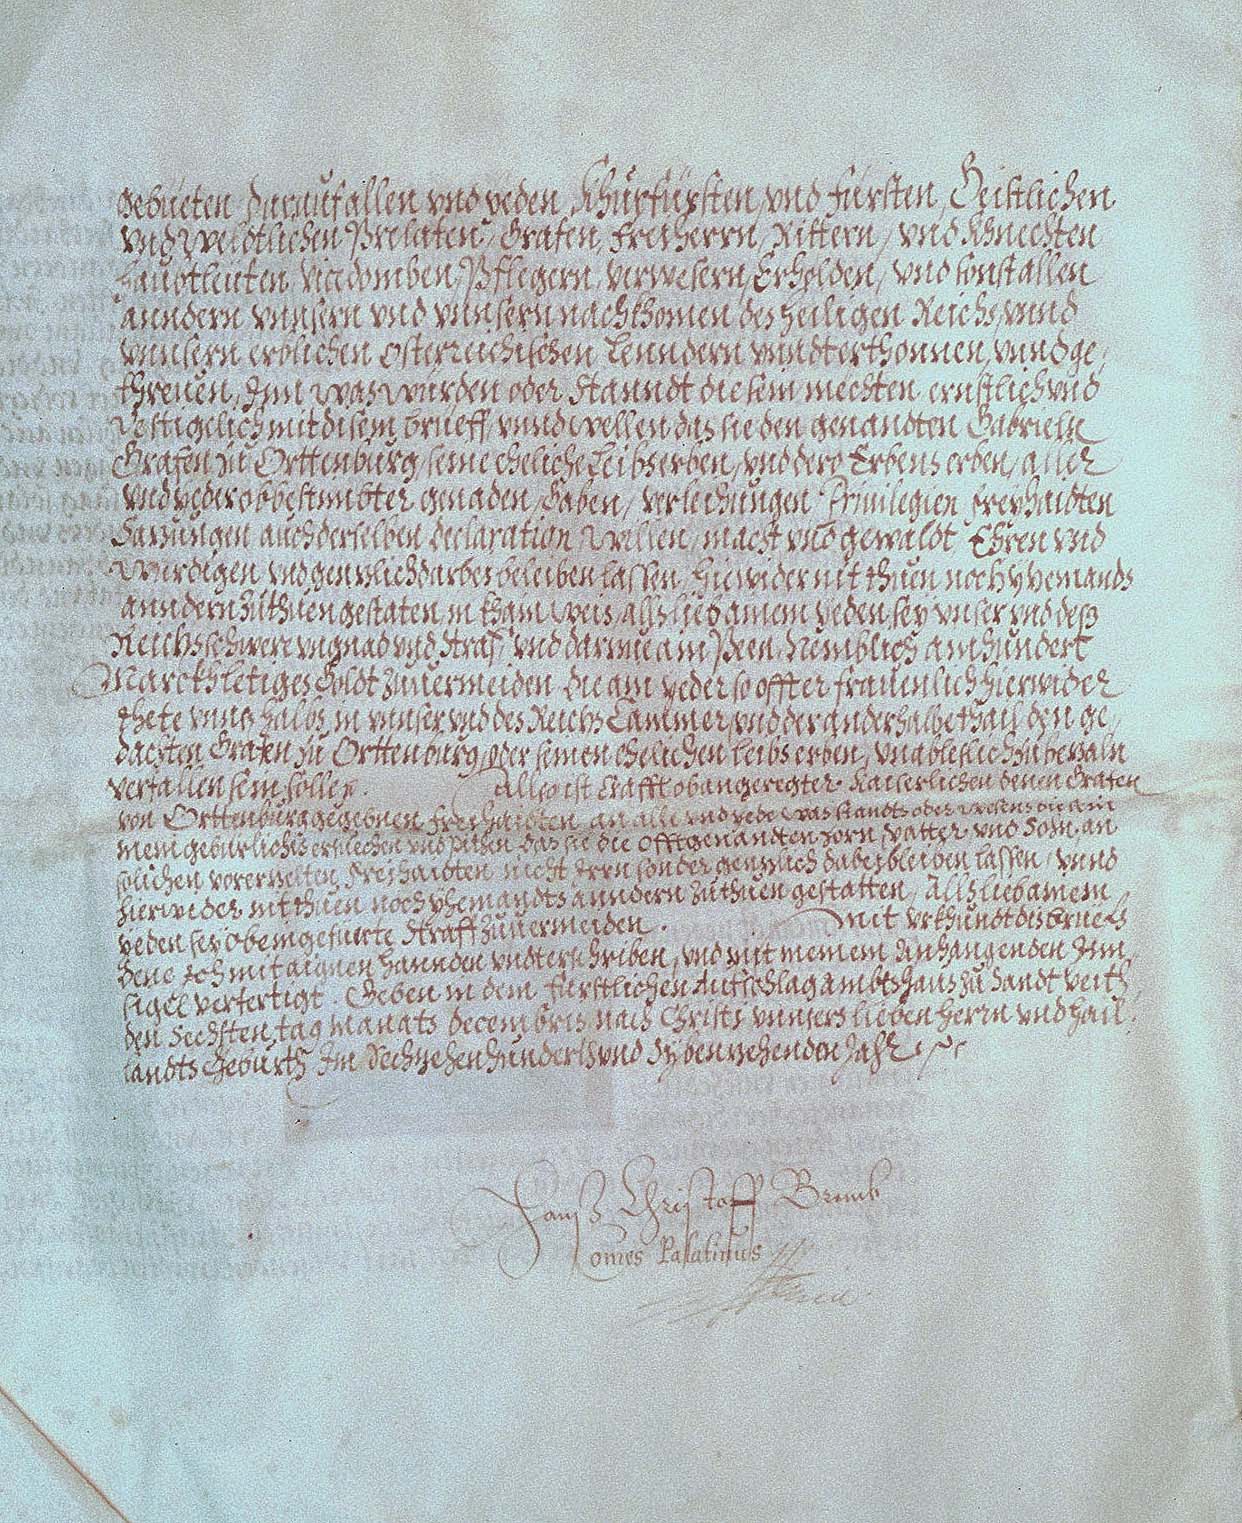 gebueten darauf allen und yeden Khurfürsten, und Fürsten, Geistlichen
und weldtlichen Prelaten, Grafen, Freiherrn, Rittern, und Khnechten
haubtleuten, vicedomben, Pflegern, verwesern, Erholden, und sonst allen
anndern unnsern und unnsern nachkhomen des heiligen Reichs, unnd
unnsern erblichen Osterreichischen Lenndern unndterthonnen, unnd ge,
threuen, Inn was würden oder Stanndt die sein mechten, ernstlich und
vestigelich mit disem brueff, unnd wellen das sie den genandten Gabrieln
Grafen zu Orttenburg, seine eheliche Leibserben, und dero Erbens erben, aller
und yeder obbestimbter genaden, Gaben, verleichungen Privilegien freyhaidten
Sazungen auch derselben declaration, willen, macht und gewaldt, Ehren und
würdigen, und genzlich darbei beleiben lassen, hiewider nit thuen noch yemands
anndern zuthuen gestaten, in khain weis, alls lieb ainem yeden sey unser und deß
Reichs schwere ungnad und straf, und darzue ain Peen, Nemblich ain hundert
Marckh letiges Goldt zuvermeiden, die ain yeder so offter fräuenlich hierwider
thete unns halbs in unnser und des Reichs Cammer, und der ander halbe thail den ge,
dachten Grafen zu Orttenburg, oder seinen ehelichen leibs erben, unableslich zubezaln
verfallen sein sollen. Allso ist Crafft obangeregter Kaiserlichen denen Grafen
von Orttenburg gegebnen freyhaidten, an alle und yede was standts oder wesens die
mein gebürlichs ersuechen und Pithen, das sie die offtgenandten vatter, und Son, an
solichen vorerzelten freyhaidten nicht irrn sonder genzlich dabei bleiben lassen, unnd
hierwider nit thuen noch yhemandts anndern zuthuen gestatten, Alls lieb ainem
yeden sey obeingefuerte straff zuvermeiden. Mit urkhundt dis brieffs
dene Ich mit aignen hannden undterschriben, und mit meinem Anhangenden Inn,
sigel verfertigt. Geben in dem Fürstlichen Aufschlag ambtshaus zu Sandt Veith,
den Sechsten tag Monats decembris, nach Christi unnsers lieben herrn und hail,
landts Geburth Im Sechzehenhunderts und Sybenzehenden Jahr
Hanß Christoff
Comes Palatinus